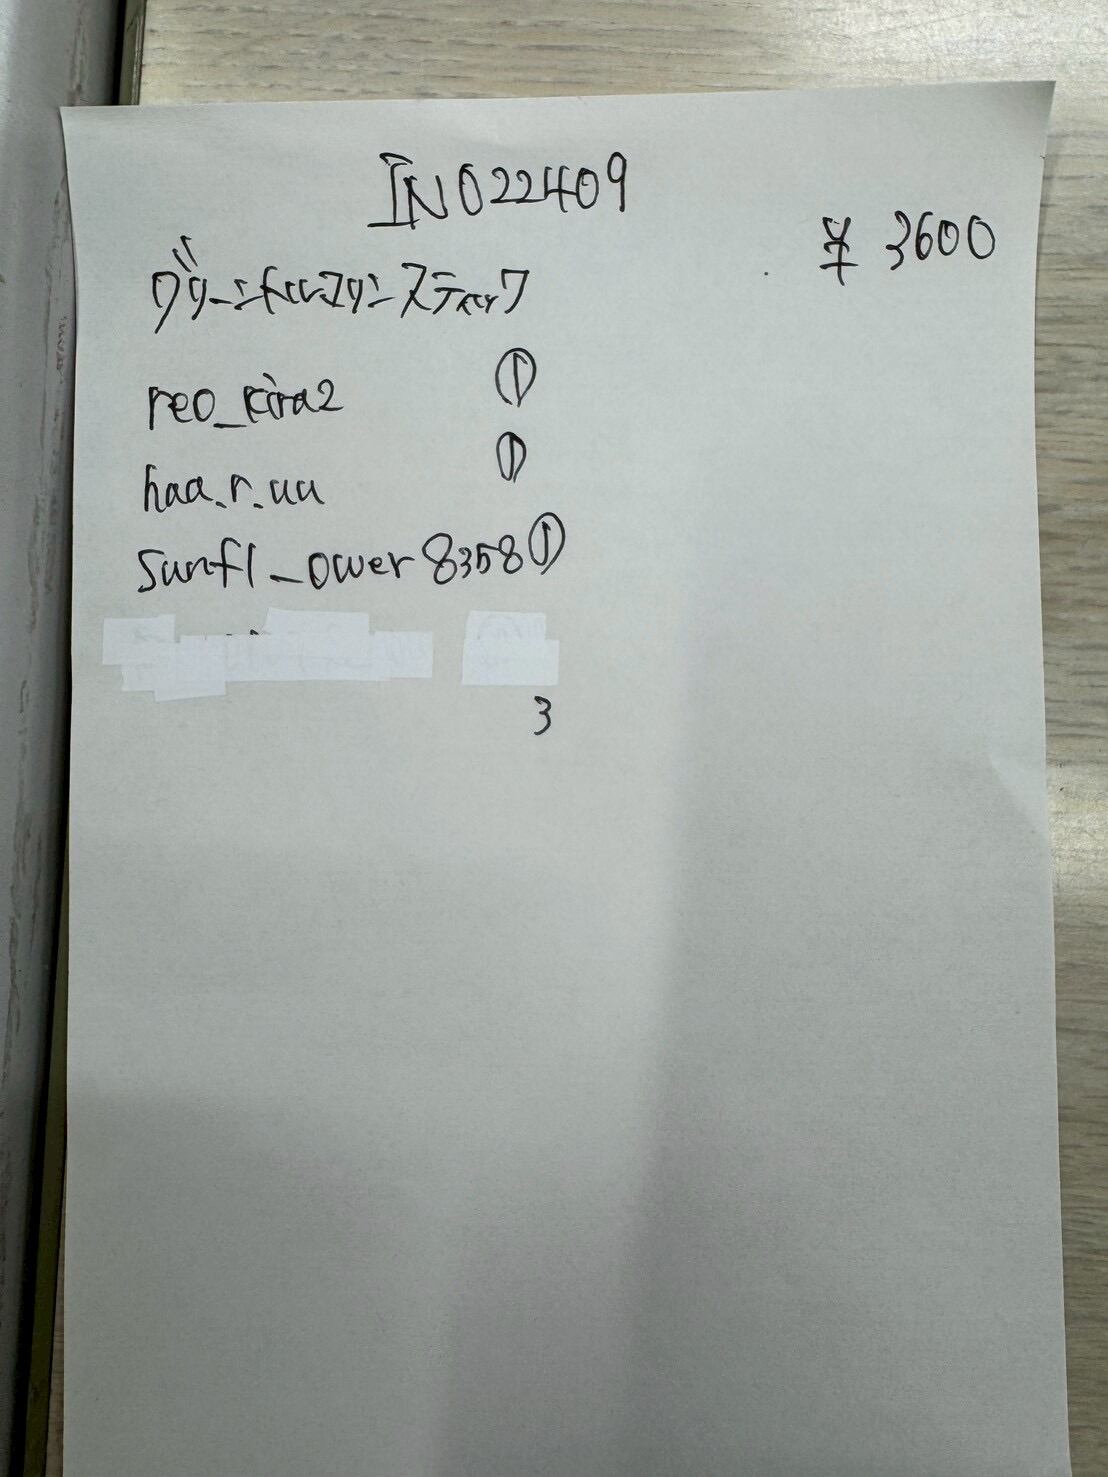 IN022409
¥ 3600
グリーントルマリンスティック
reo_kira2 ①
haa.r.uu ①
sunfl_ower8358 ①
3